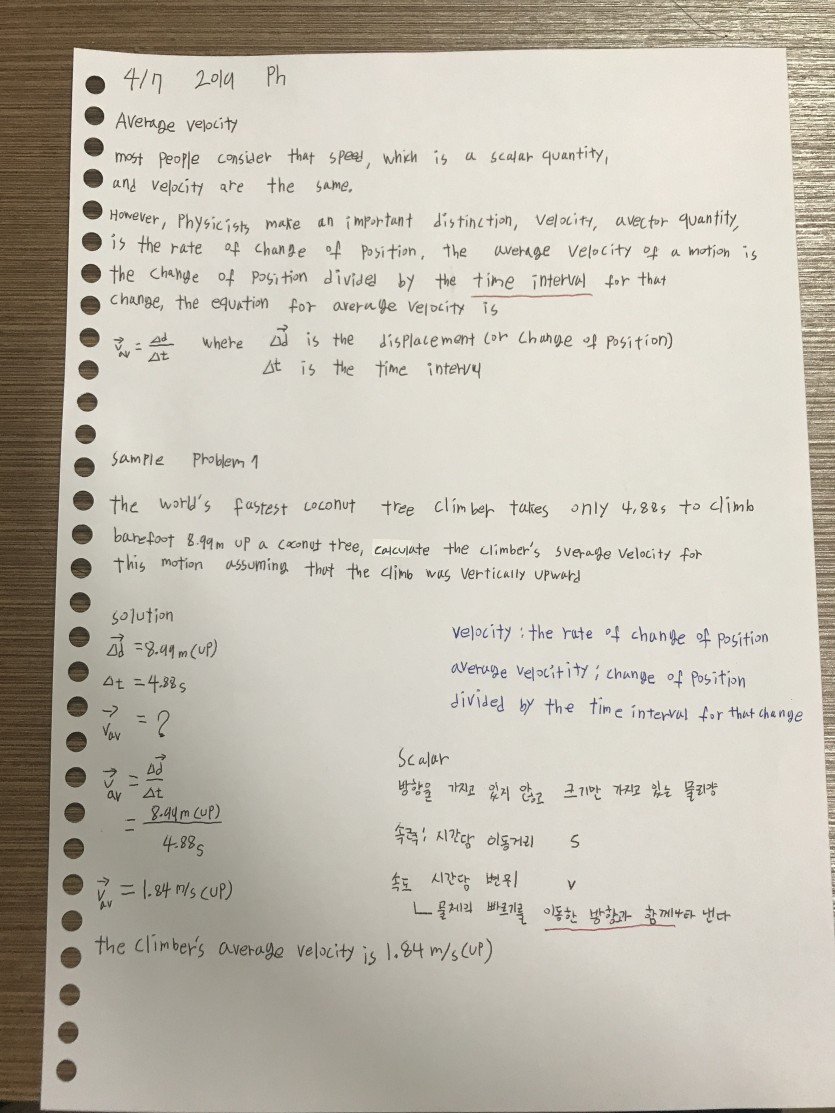 4/7 2019 Ph
Average velocity
most people consider that speed, which is a scalar quantity,
and velocity are the same.
However, Physicists make an important distinction, velocity, avector quantity,
is the rate of change of position, the average velocity of a motion is
the change of position divided by the time interval for that
change, the equation for average velocity is
v⃗av = Δd/Δt where Δd⃗ is the displacement (or change of position)
Δt is the time intervy
Sample Problem 1
the world's fastest coconut tree climber takes only 4,88s to climb
barefoot 8.99m up a coconut tree, calculate the climber's sverage velocity for
this motion assuming that the climb was vertically upward
solution
Δd⃗ = 8.99m (UP)
Δt = 4.88s
v⃗av = ?
v⃗av = Δd⃗/Δt
= 8.99m (UP)/4.88s
v⃗av = 1.84 m/s (UP)
the climber's average velocity is 1.84 m/s (UP)
velocity : the rate of change of position
average velocitity ; change of position
divided by the time interval for that change
Scalar
방향을 가지고 있지 않고 크기만 가지고 있는 물리량
속력 ; 시간당 이동거리 S
속도 시간당 변위 v
물체의 빠르기를 이동한 방향과 함께 나타 낸다